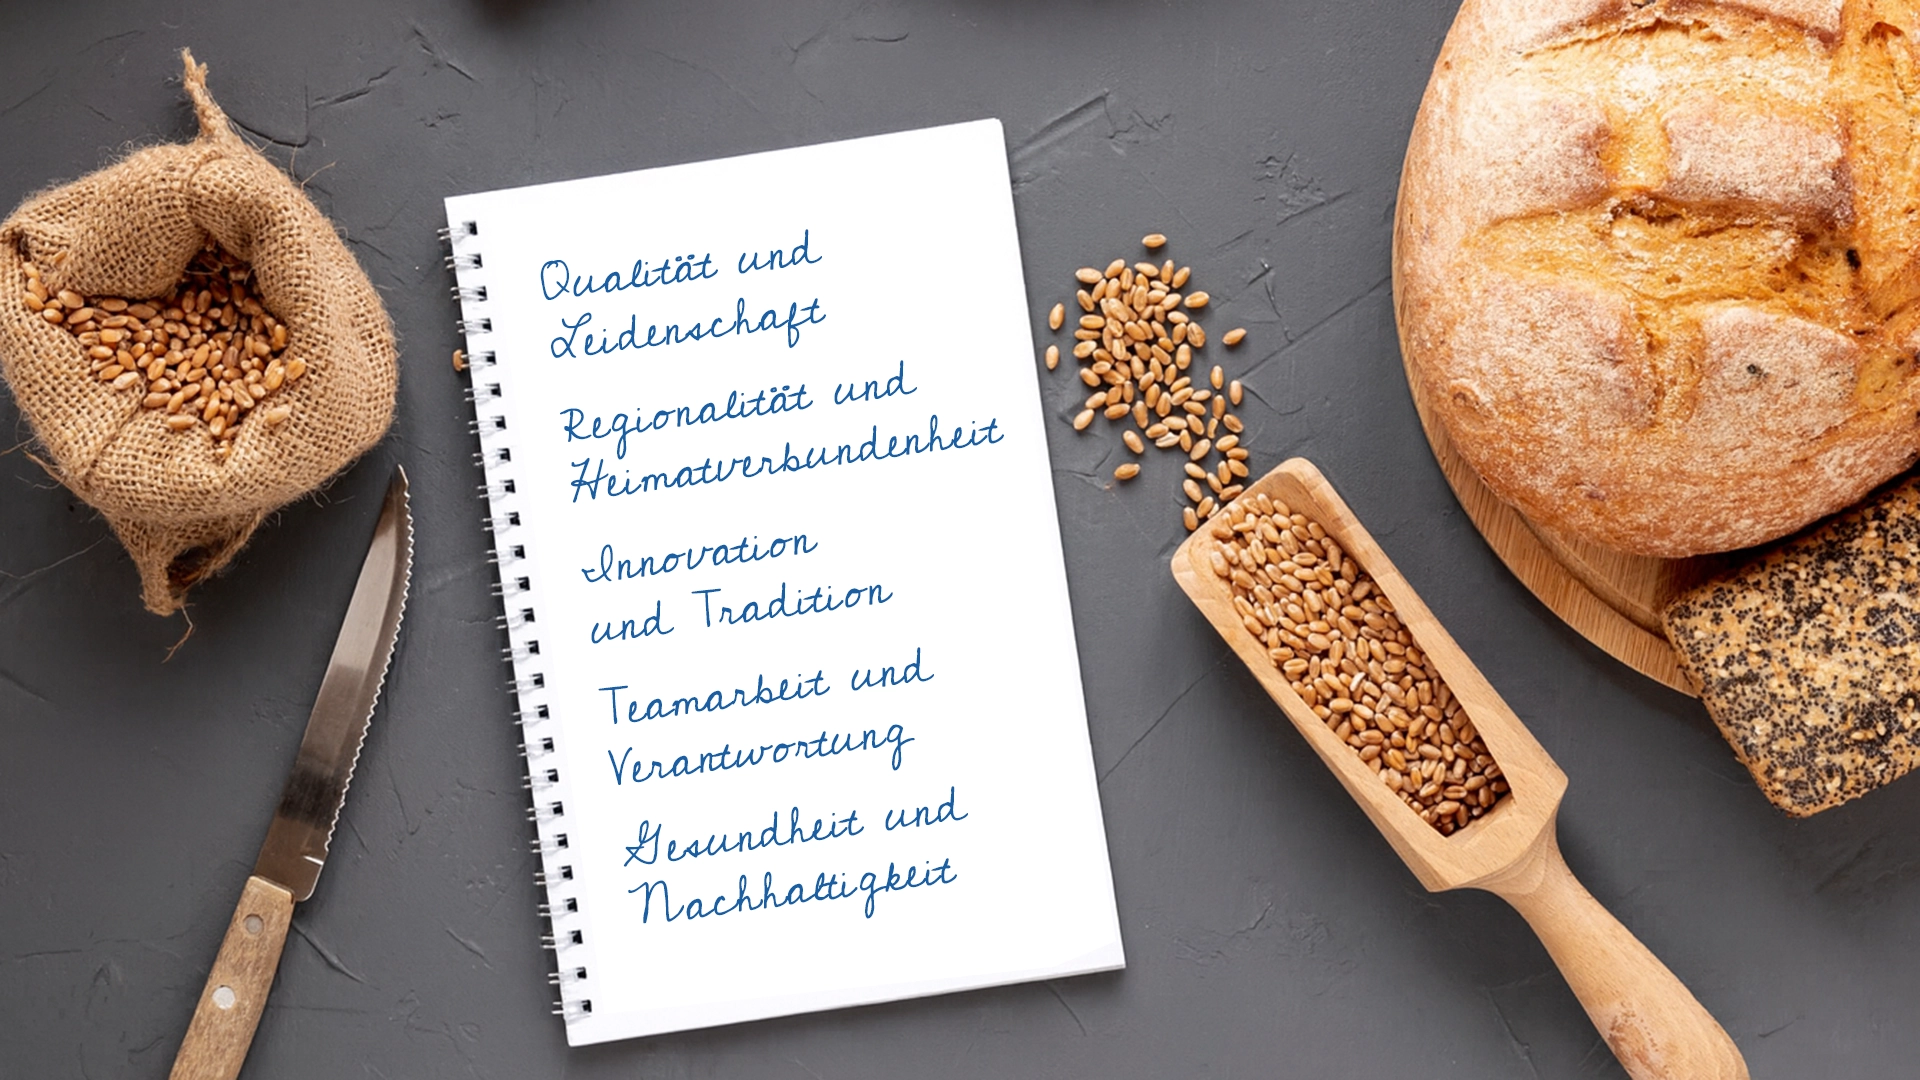 Qualität und
Leidenschaft
Regionalität und
Heimatverbundenheit
Innovation
und Tradition
Teamarbeit und
Verantwortung
Gesundheit und
Nachhaltigkeit